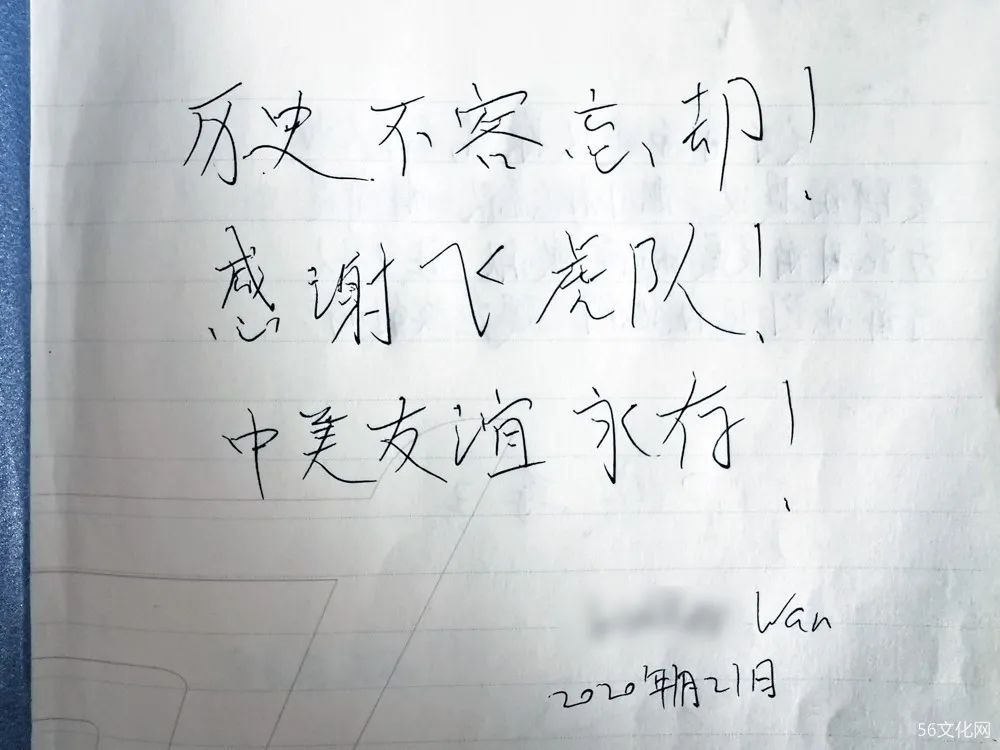 历史不容忘却！
感谢飞虎队！
中美友谊永存！
Wan
2020年月21日
56文化网